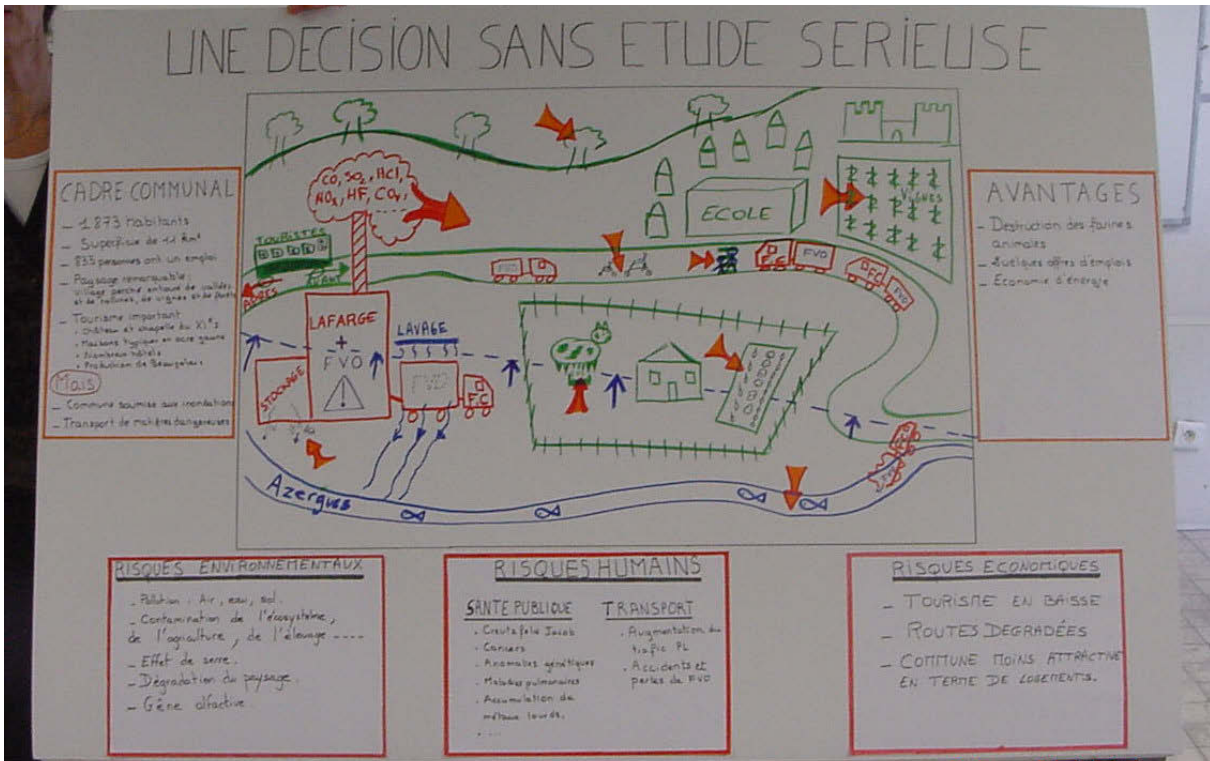 UNE DECISION SANS ETUDE SERIEUSE
CADRE COMMUNAL
- 1 873 habitants
- Superficie de 11 km²
- 835 personnes ont un emploi
- Paysage remarquable :
village perché entouré de vallées
et de collines, de vignes et de forêts
- Tourisme important
• Château et chapelle du XIe s
• Maisons typiques en ocre jaune
• Nombreux hôtels
• Production de Beaujolais
Mais
- Commune soumise aux inondations
- Transport de matières dangereuses
CO, SO2, HCl,
NOx, HF, COV,
TOURISTES
AVANT
APRES
LAFARGE
+
FVO
STOCKAGE
LAVAGE
FVO
F.C
FVO
ECOLE
F.C
FVO
F.C
FVO
VIGNES
F.C
Azergues
AVANTAGES
- Destruction des farines
animales
- Quelques offres d'emplois
- Economie d'énergie
RISQUES ENVIRONNEMENTAUX
- Pollution : Air, eau, sol.
- Contamination de l'écosystème,
de l'agriculture, de l'élevage ----
- Effet de serre.
- Dégradation du paysage.
- Gêne olfactive.
RISQUES HUMAINS
SANTE PUBLIQUE
• Creutzfeld Jacob
• Cancers
• Anomalies génétiques
• Maladies pulmonaires
• Accumulation de
métaux lourds.
• ....
TRANSPORT
• Augmentation du
trafic PL
• Accidents et
pertes de FVO
RISQUES ECONOMIQUES
- TOURISME EN BAISSE
- ROUTES DEGRADÉES
- COMMUNE MOINS ATTRACTIVE
EN TERME DE LOGEMENTS.